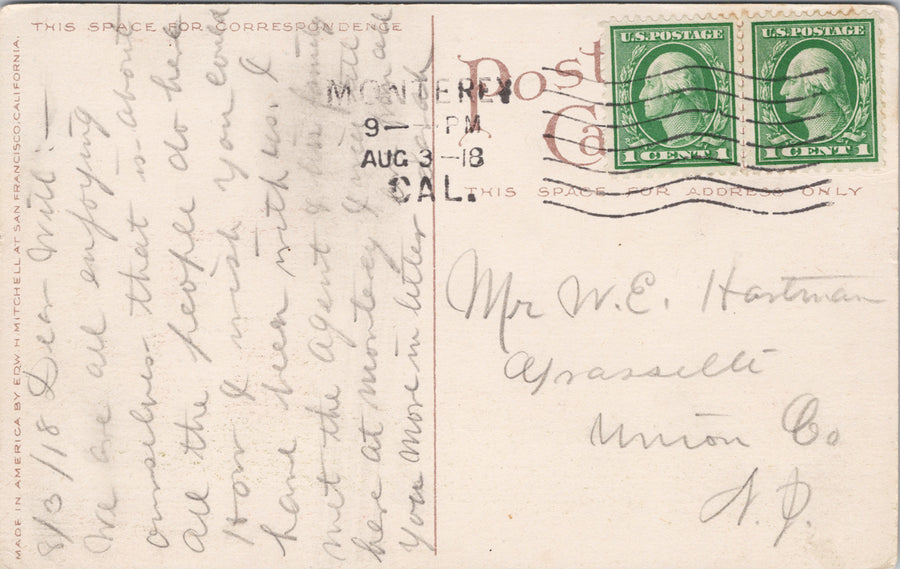 THIS SPACE FOR CORRESPONDENCE
MADE IN AMERICA BY EDW. H. MITCHELL AT SAN FRANCISCO, CALIFORNIA.
8/3/18 Dear Will —
We are all enjoying
ourselves. that is about
all the people do here
How I wish you could
have been with us. I
met the agent
here at Monterey I will tell
you more in letter
Post
Ca
MONTEREY
9— PM
AUG 3—18
CAL.
U.S. POSTAGE
1 CENT 1
U.S. POSTAGE
1 CENT 1
THIS SPACE FOR ADDRESS ONLY
Mr W. E. Hartman
Grasselli
Union Co
N. J.